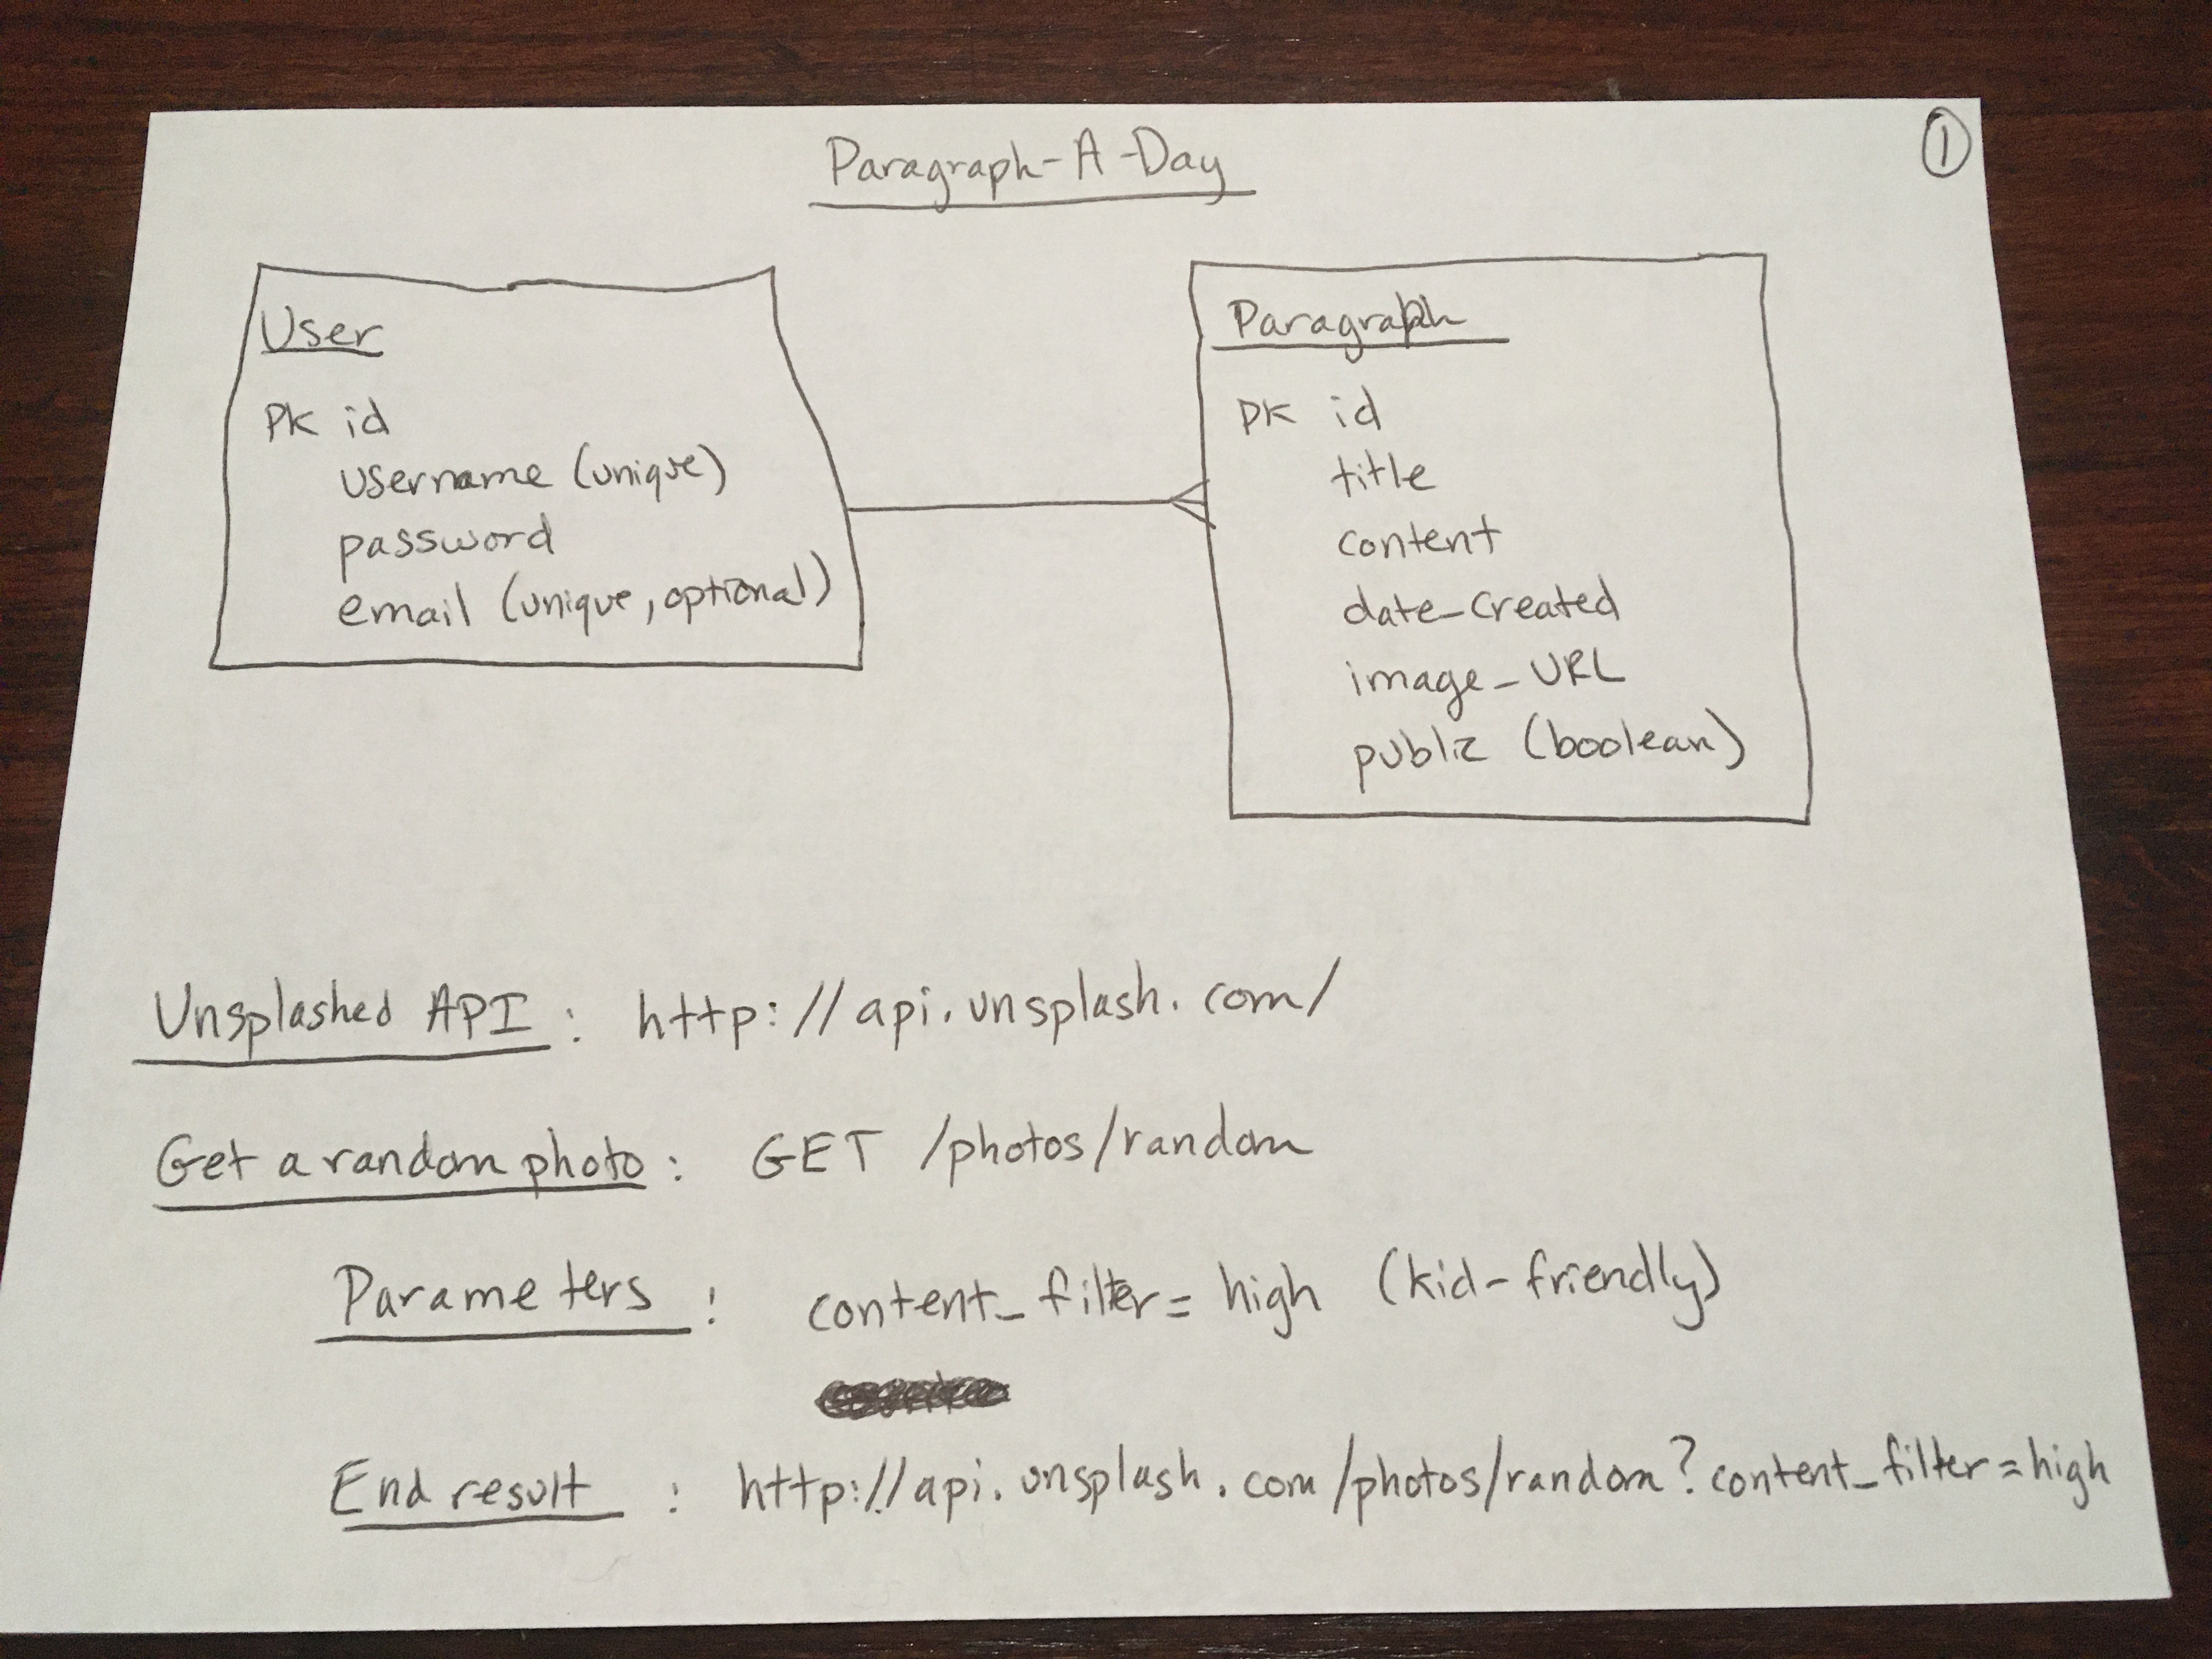 Paragraph-A-Day
①
User
PK id
username (unique)
password
email (unique, optional)
Paragraph
PK id
title
content
date_created
image_URL
public (boolean)
Unsplashed API : http://api.unsplash.com/
Get a random photo : GET /photos/random
Parameters : content_filter=high (kid-friendly)
End result : http://api.unsplash.com/photos/random?content_filter=high